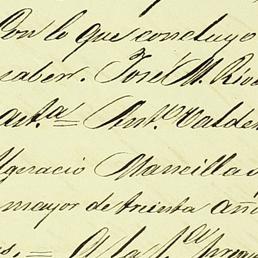 Con lo que concluyo
saber. José M. Rive
Art.ª = Ant.º Valde
Ygnacio Mancilla
mayor de treinta año
= A la 1.ª